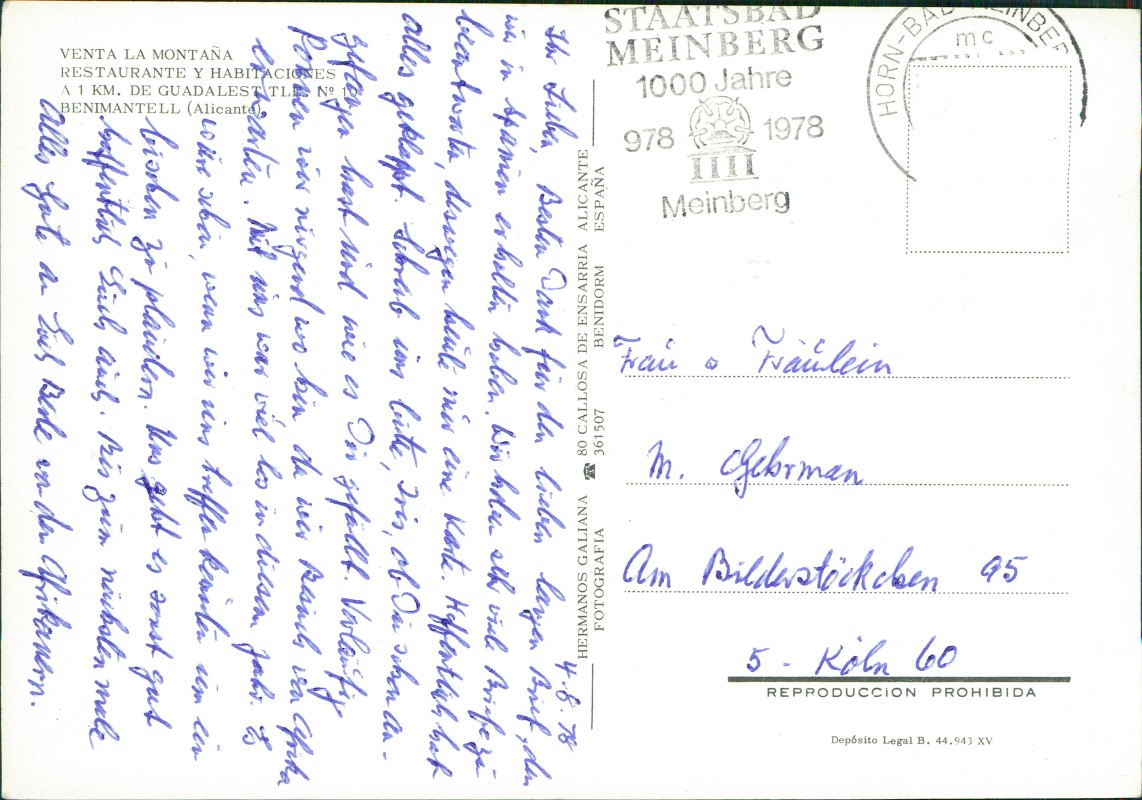 VENTA LA MONTAÑA
RESTAURANTE Y HABITACIONES
A 1 KM. DE GUADALEST TLF. Nº 1
BENIMANTELL (Alicante)
4.8.78
Ihr Lieben, Besten Dank für den lieben langen Brief, den
wir in Spanien erhalten haben. Wir haben sehr viele Briefe zu
beantworten, deswegen heute nur eine Karte. Hoffentlich hat
alles geklappt. Schreib uns bitte, Iris, ob Du schon an-
gefangen hast und wie es Dir gefällt. Vorläufig
können wir nirgend wo hin da wir Besuch von Afrika
erwarten. Mit uns war viel los in diesem Jahr. Es
wäre schön, wenn wir uns treffen könnten um ein
bisschen zu plaudern. Uns geht es sonst gut
hoffentlich Euch auch. Bis zum nächsten male
Alles Gute an Euch Beide von den Afrikanern.
HERMANOS GALIANA ☎ 80 CALLOSA DE ENSARRIA ALICANTE
FOTOGRAFIA 361507 BENIDORM ESPAÑA
STAATSBAD
MEINBERG
1000 Jahre
978 1978
Meinberg
HORN-BAD MEINBERG
mc
Frau u Fräulein
M. Gehrman
Am Bilderstöckchen 95
5 - Köln 60
REPRODUCCION PROHIBIDA
Depósito Legal B. 44.943 XV